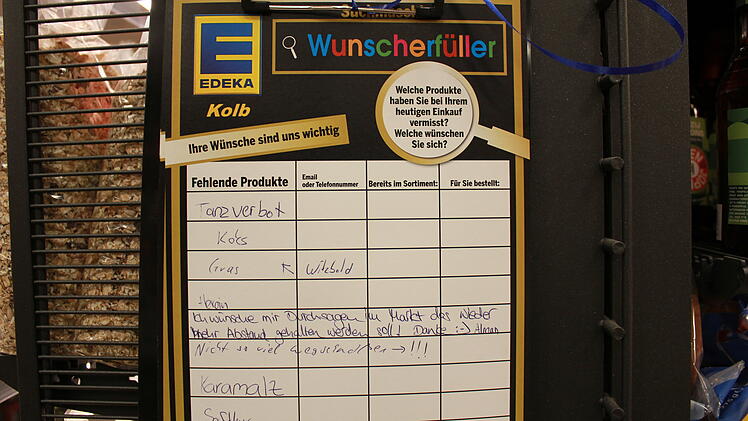 EDEKA
Kolb
Wunscherfüller
Ihre Wünsche sind uns wichtig
Welche Produkte
haben Sie bei Ihrem
heutigen Einkauf
vermisst?
Welche wünschen
Sie sich?
Fehlende Produkte
Email
oder Telefonnummer
Bereits im Sortiment:
Für Sie bestellt:
Tanzverbot
Koks
Gras ↖ Witzbold
Ich wünsche mir Durchsagen im Markt das wieder
mehr Abstand gehalten werden soll! Danke :-) Alman
Nicht so viel → !!!
Karamalz